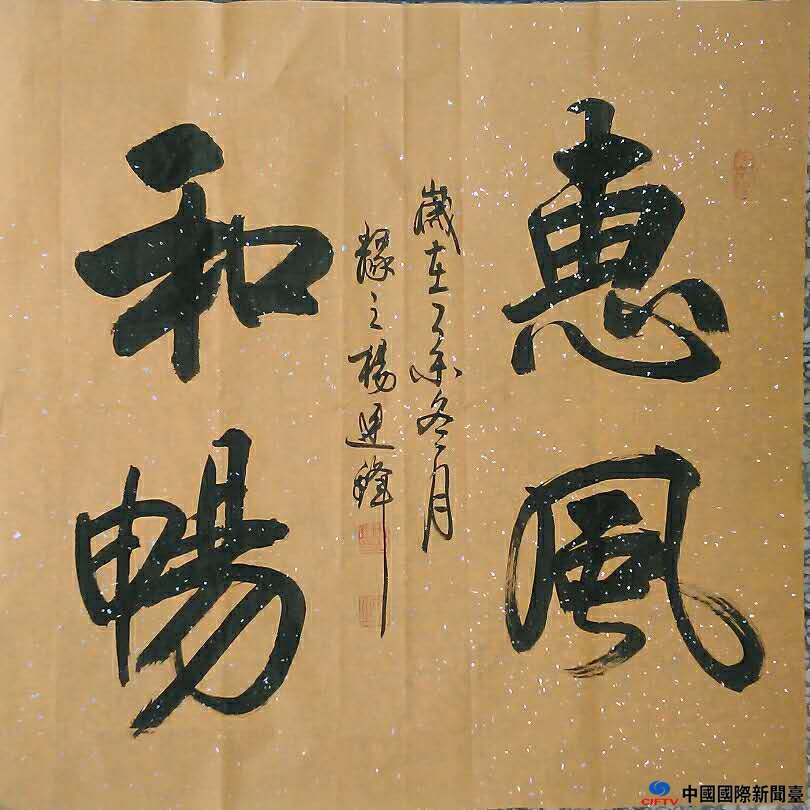 惠風
和暢
歲在乙未冬月
緣之楊建鋒
CIFTV 中國國際新聞臺